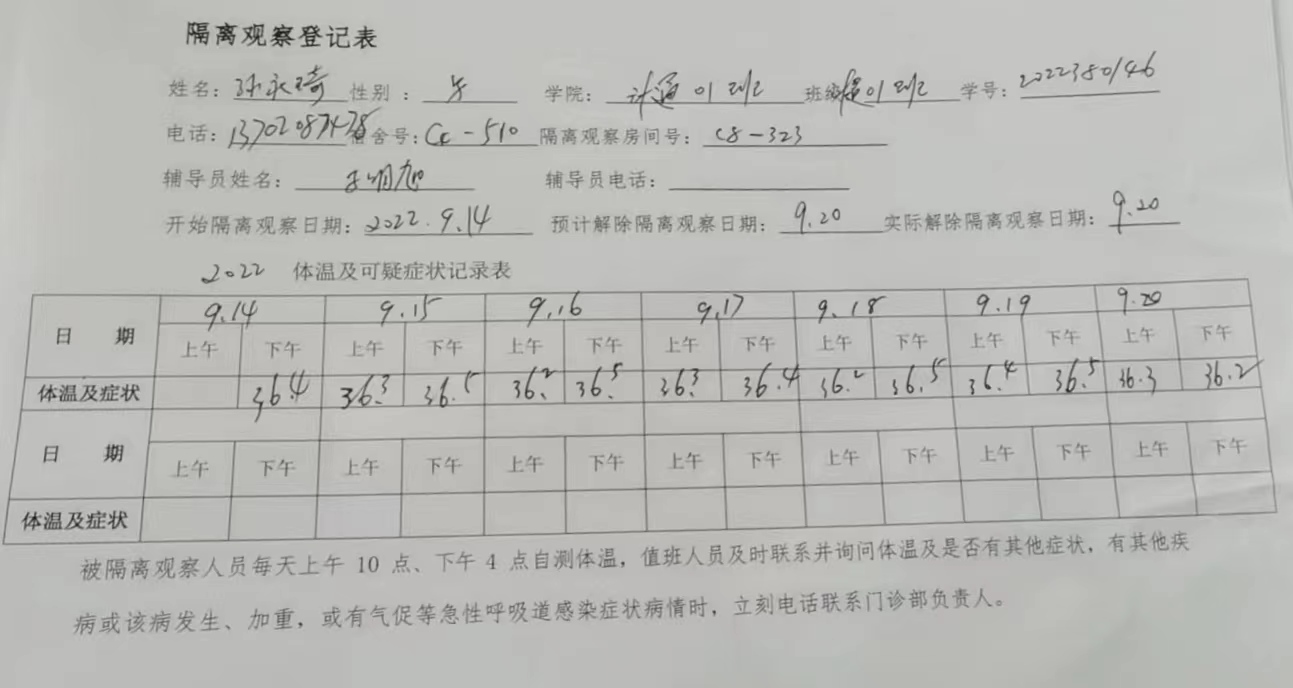 隔离观察登记表
姓名：孙永琦 性别：男 学院：计通01班 班级：01班 学号：2022380146
电话：13702087478 宿舍号：C6-510 隔离观察房间号：C8-323
辅导员姓名：王明旭 辅导员电话：
开始隔离观察日期：2022.9.14 预计解除隔离观察日期：9.20 实际解除隔离观察日期：9.20
2022 体温及可疑症状记录表
日期 9.14 9.15 9.16 9.17 9.18 9.19 9.20
上午 下午 上午 下午 上午 下午 上午 下午 上午 下午 上午 下午 上午 下午
体温及症状 36.4 36.3 36.5 36.2 36.5 36.3 36.4 36.2 36.5 36.4 36.5 36.3 36.2
日期
上午 下午 上午 下午 上午 下午 上午 下午 上午 下午 上午 下午 上午 下午
体温及症状
被隔离观察人员每天上午 10 点、下午 4 点自测体温，值班人员及时联系并询问体温及是否有其他症状，有其他疾
病或该病发生、加重，或有气促等急性呼吸道感染症状病情时，立刻电话联系门诊部负责人。